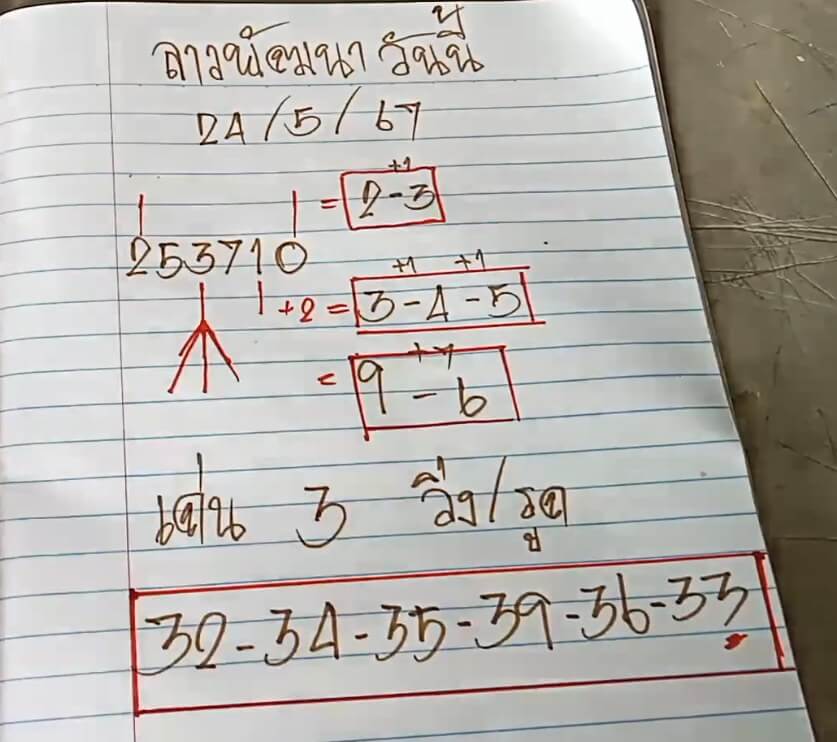 ลาวพัฒนา วันนี้
24/5/67
+1
= 2-3
253710
+1 +1
+2 = 3-4-5
+7
= 9-6
เด่น 3 วิ่ง/รูด
32-34-35-39-36-33